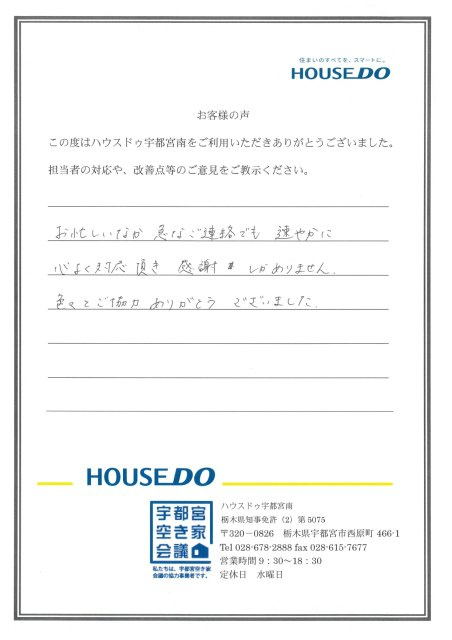 住まいのすべてを、スマートに。
HOUSEDO
お客様の声
この度はハウスドゥ宇都宮南をご利用いただきありがとうございました。
担当者の対応や、改善点等のご意見をご教示ください。
お忙しいなか 急なご連絡でも 速やかに
心よく対応頂き 感謝 しかありません。
色々とご協力 ありがとう ございました。
HOUSEDO
宇都宮
空き家
会議
私たちは、宇都宮空き家
会議の協力事業者です。
ハウスドゥ宇都宮南
栃木県知事免許（2）第 5075
〒320－0826 栃木県宇都宮市西原町 466-1
Tel 028-678-2888 fax 028-615-7677
営業時間 9：30～18：30
定休日 水曜日